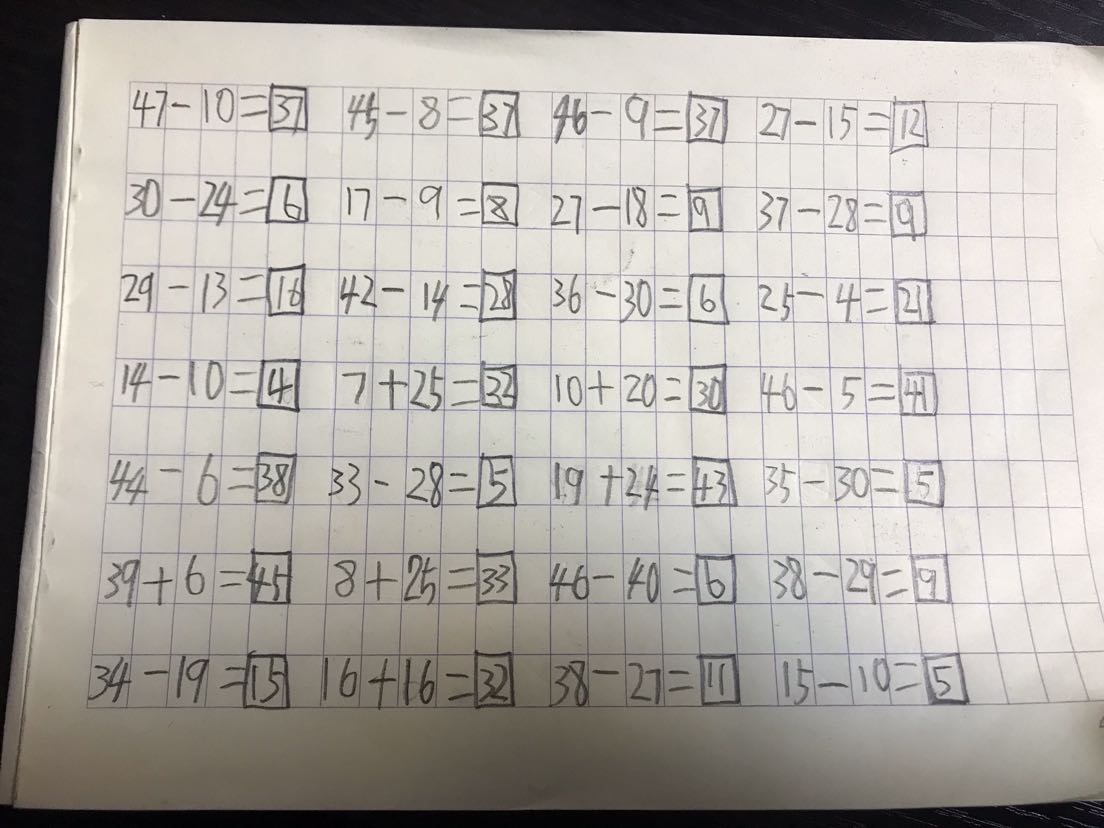 47-10=37 45-8=37 46-9=37 27-15=12
30-24=6 17-9=8 27-18=9 37-28=9
29-13=16 42-14=28 36-30=6 25-4=21
14-10=4 7+25=32 10+20=30 46-5=41
44-6=38 33-28=5 19+24=43 35-30=5
39+6=45 8+25=33 46-40=6 38-29=9
34-19=15 16+16=32 38-27=11 15-10=5